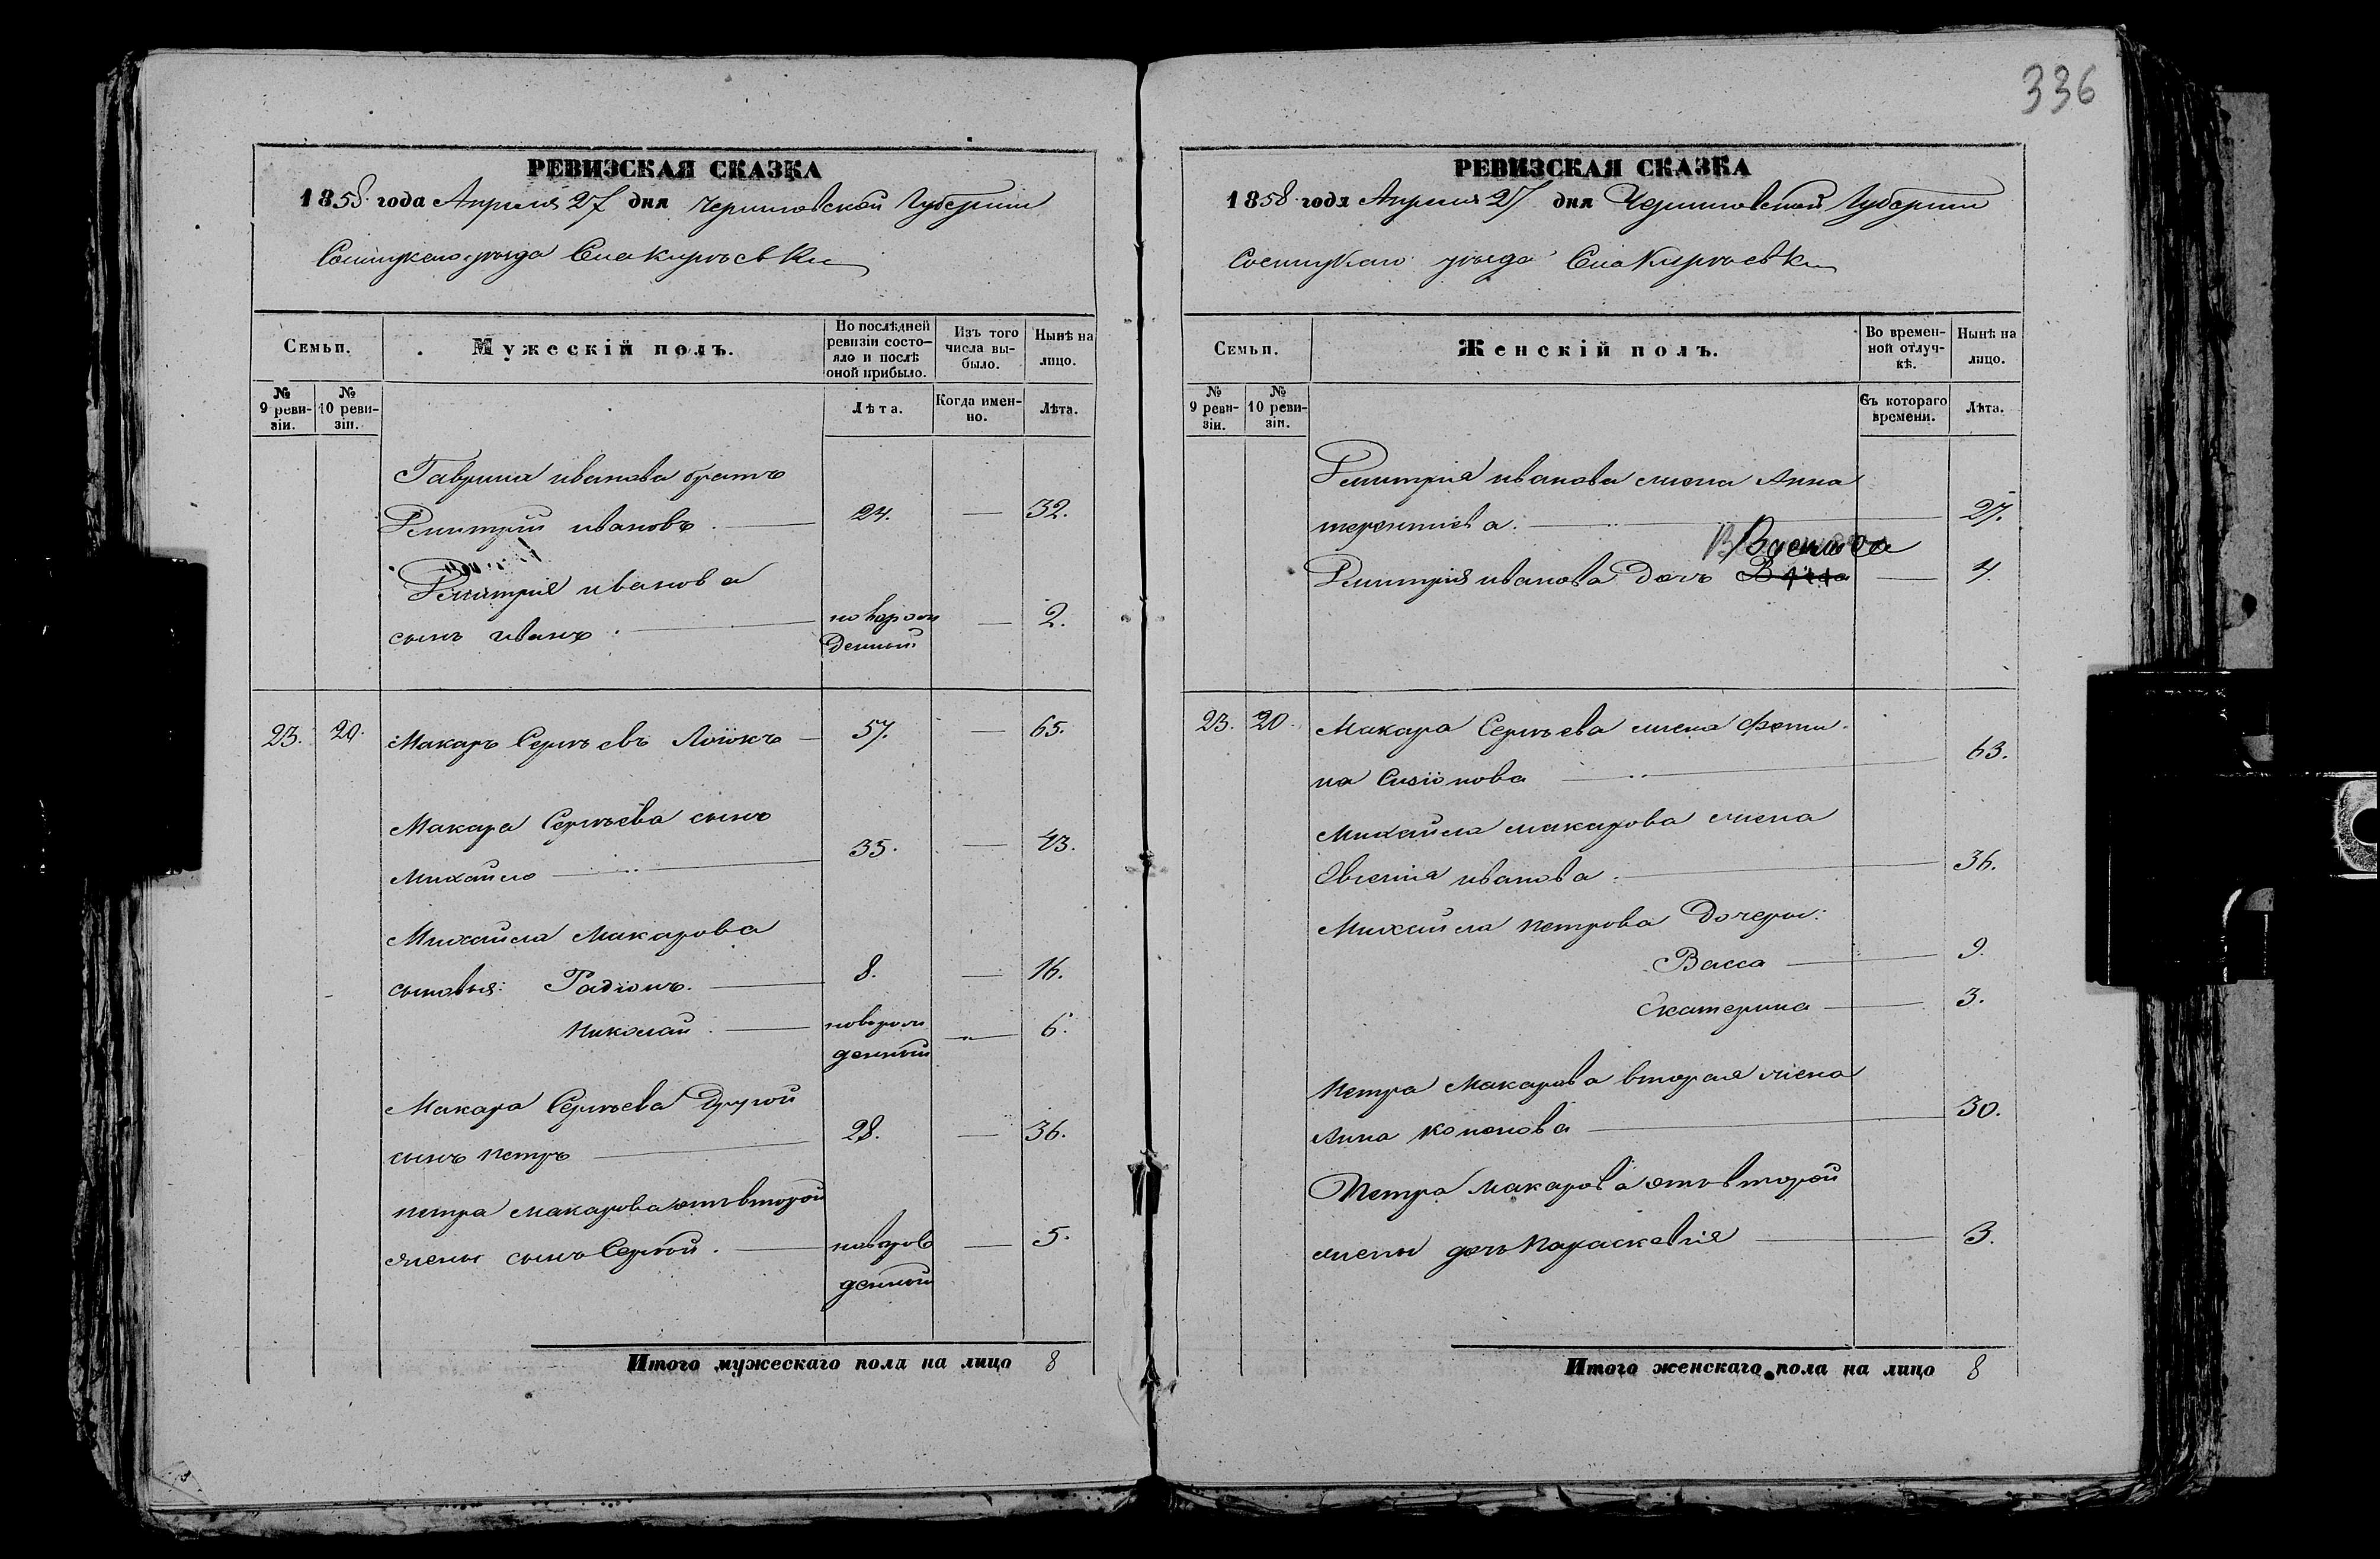 336
РЕВИЗСКАЯ СКАЗКА
1858 года Апреля 27 дня Черниговской Губернии
Сосницкаго уѣзда Села Кирѣевки
Семьи.
Мужескій полъ.
По послѣдней ревизіи состояло и послѣ оной прибыло.
Изъ того числа выбыло.
Нынѣ на лицо.
№ 9 ревизіи.
№ 10 ревизіи.
Лѣта.
Когда именно.
Лѣта.
Гаврила иванова братъ
Дмитрій ивановъ. 24. — 32.
Дмитрія иванова
сынъ иванъ. новорожденный — 2.
23. 20. Макаръ Сергѣевъ 57. — 65.
Макара Сергѣева сынъ
Михайло 35. — 43.
Михайла Макарова
сыновья: Радіонъ. 8. — 16.
Николай. новорожденный — 6.
Макара Сергѣева Другой
сынъ петръ 28. — 36.
петра макарова отъ второй
жены сынъ Сергѣй. новорожденный — 5.
Итого мужескаго пола на лицо 8
РЕВИЗСКАЯ СКАЗКА
1858 года Апреля 27 дня Черниговской Губернии
Сосницкаго уѣзда Села Кирѣевки
Семьи.
Женскій полъ.
Во временной отлучкѣ.
Нынѣ на лицо.
№ 9 ревизіи.
№ 10 ревизіи.
Съ котораго времени.
Лѣта.
Дмитрія иванова жена Анна
терентіева. 27.
Дмитрія иванова Дочь — 4.
23. 20. Макара Сергѣева жена Фети-
на 63.
Михайла макарова жена
Евгенія иванова. 36.
Михайла петрова Дочери:
Васса — 9.
Екатерина — 3.
Петра Макарова вторая жена
Анна кононова 30.
Петра макарова отъ второй
жены дочь Параскевія 3.
Итого женскаго пола на лицо 8